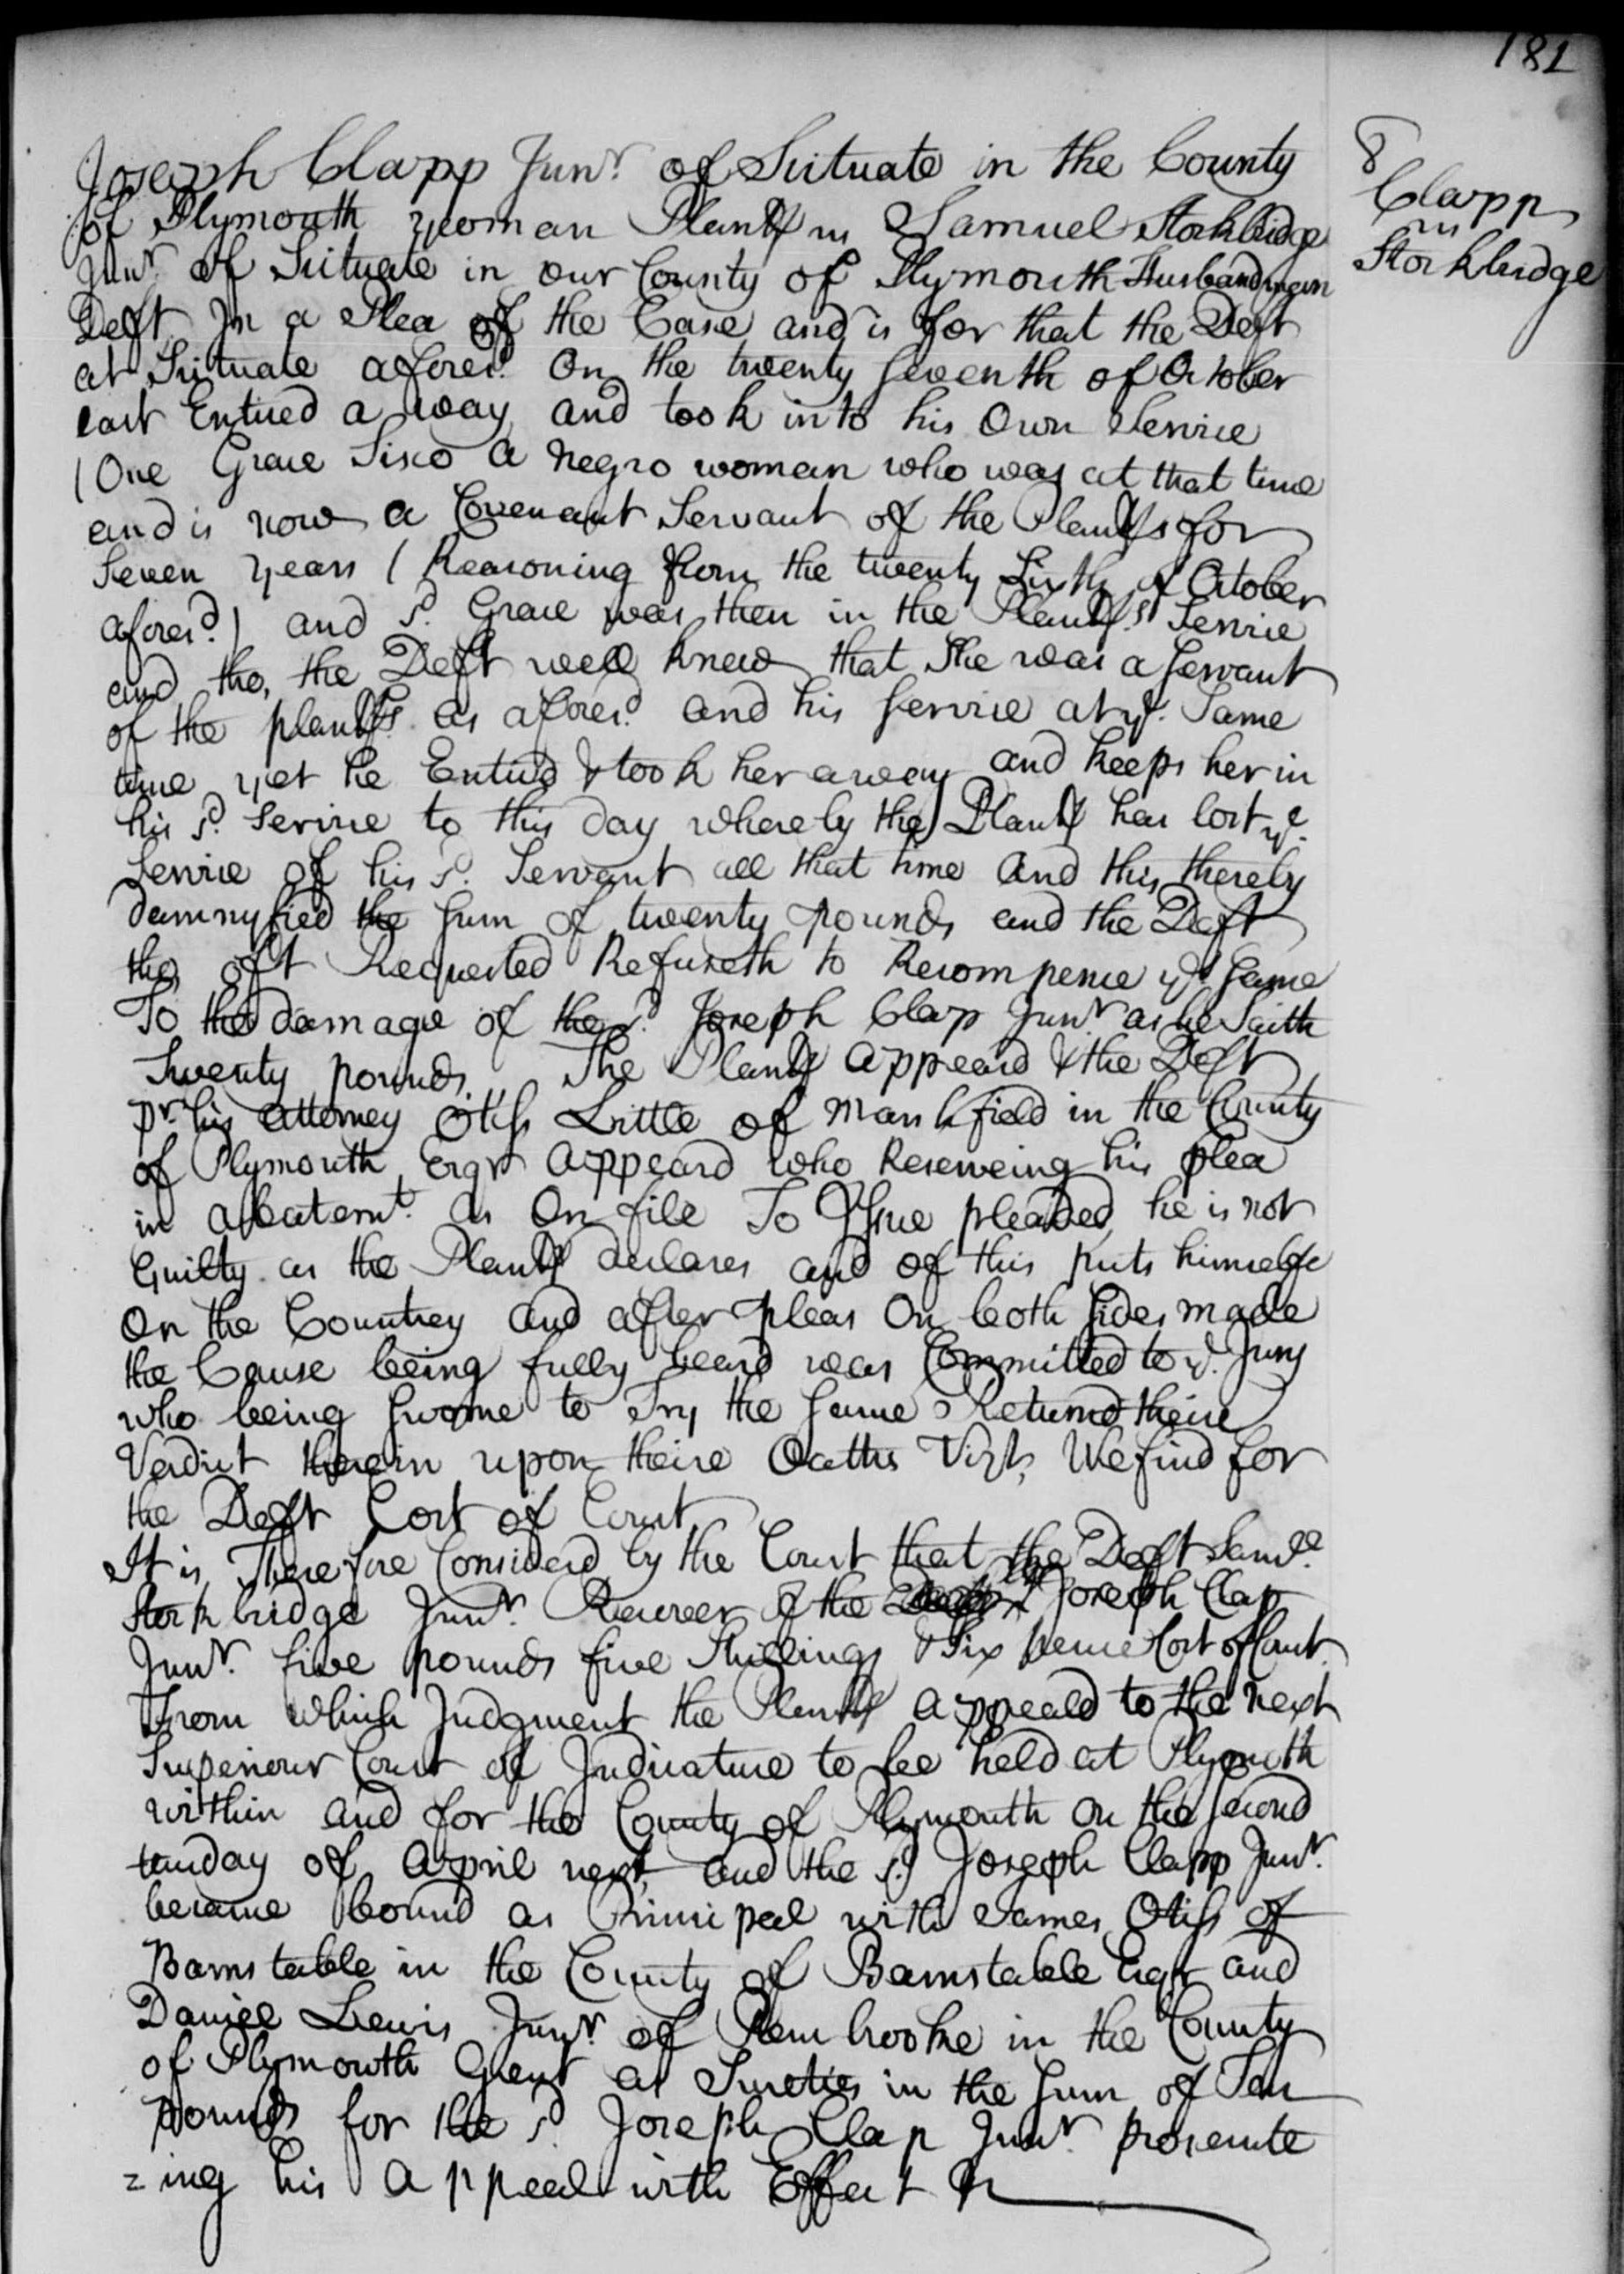 181
8
Clapp
vs
Stockbridge
Joseph Clapp Junr. of Scituate in the County
of Plymouth yeoman Planty vs Samuel Stockbridge
Junr. of Scituate in our County of Plymouth Husbandman
Deft In a Plea of the Case and is for that the Deft
at Scituate aforesd. On the twenty Seventh of October
last Enticed a way and took into his Own Service
(One Grace Sisco a Negro woman who was at that time
and is now a Covenant Servant of the Plantfs for
Seven years (Reasoning from the twenty Sixth of October
aforesd.) and sd. Grace was then in the Plantfs. Service
and tho, the Deft well knew that She was a Servant
of the plantfs. as aforesd. and his Service at ye. Same
time yet he Enticd & took her away and keeps her in
his sd. Service to this day whereby the Plantf has lost ye.
Service of his sd. Servant all that time and this thereby
damnyfied the Sum of twenty pounds and the Deft
tho, oft Requested Refuseth to Recompence ye. Same
To the damage of the sd. Joseph Clap Junr. as he Saith
Twenty pounds. The Plantf appeard & the Deft
pr. his attorney Otiss Little of Marshfield in the County
of Plymouth Esqr appeard who Reserveing his plea
in abatemt. as On file To Issue pleaded he is not
Guilty as the Plantf declares and of this puts himselfe
On the Countrey and after pleas On both Sides made
the Cause being fully heard was Committed to ye. Jury
who being Sworne to Try the Same Returnd theire
Verdict therein upon theire Oaths Vizt, We find for
the Deft Cost of Court
It is Therefore Considerd by the Court that the Deft Samll.
Stockbridge Junr. Recover of the Joseph Clap
Junr. five pounds five Shillings & Six pence Cost of Court.
From which Judgment the Plantf appeald to the next
Superiour Court of Judicature to bee held at Plymouth
within and for the County of Plymouth on the Second
tuesday of April next, and the sd. Joseph Clapp Junr.
became bound as Principal with James Otiss of
Barnstable in the County of Barnstable Esqr and
Daniel Lewis Junr. of Pembrooke in the County
of Plymouth Gent as Sureties in the Sum of Ten
pounds for the sd. Joseph Clap Junr. prosecute
=ing his Appeal with Effect